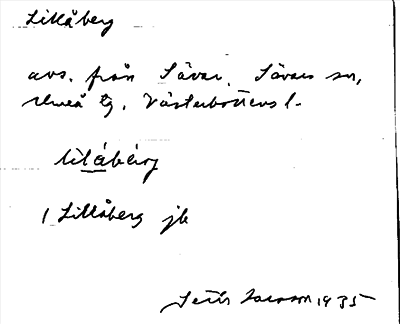 Lillåberg
avs. från Sävar, Sävars sn,
Umeå tg, Västerbottens l.
lìlábærj
1 Lillåberg jb
1935